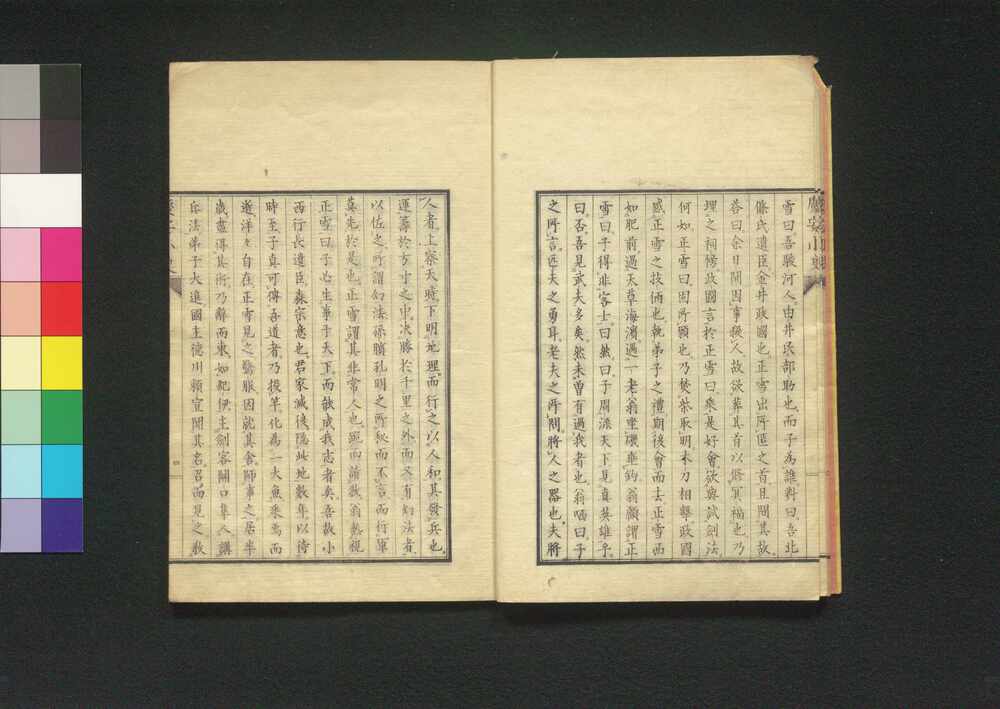 慶安小史
雪曰吾駿河人由井民部助也而子為誰對曰吾北
條氏遺臣金井政國也正雪出所匿之首且問其故
答曰余日閒因事殺人故欲葬其首以修冥福也乃
埋之祠傍政國言於正雪曰乘是好會欲與試劍法
何如正雪曰固所願也乃焚茶取明木刀相擊政國
感正雪之技倆也執弟子之禮期後會而去正雪西
如肥前過天草海濱遇一老翁坐礁垂釣翁顧謂正
雪曰子得非客士曰然曰子周游天下見真英雄乎
曰否吾見武夫多矣然未曾有過我者也翁哂曰子
之所言匹夫之勇耳老夫之所問將人之器也夫將
人者上察天時下明地理而行之以人和其發兵也
運籌於方寸之中决勝於千里之外而又有幻法者
以佐之所謂幻法孫臏孔明之所秘而不言而行軍
莫先於是也正雪謂其非常人也跪而請教翁熟視
正雪曰子必生事于天下而欲成我志者矣吾故小
西行長遺臣森宗意也君家滅後隱此地數年以待
時至子真可傳吾道者乃投竿化為一大魚乘焉而
逝洋々自在正雪見之驚服因就其舍師事之居半
歲盡得其術乃辭而東如紀伊主劍客關口隼人講
兵法弟子大進國主德川賴宣聞其名召而見之教
慶安小史